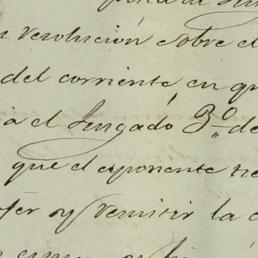 resolución sobre el
del corriente, en qu
a el Juzgado 3.º de
que el exponente tie
y remitir la c